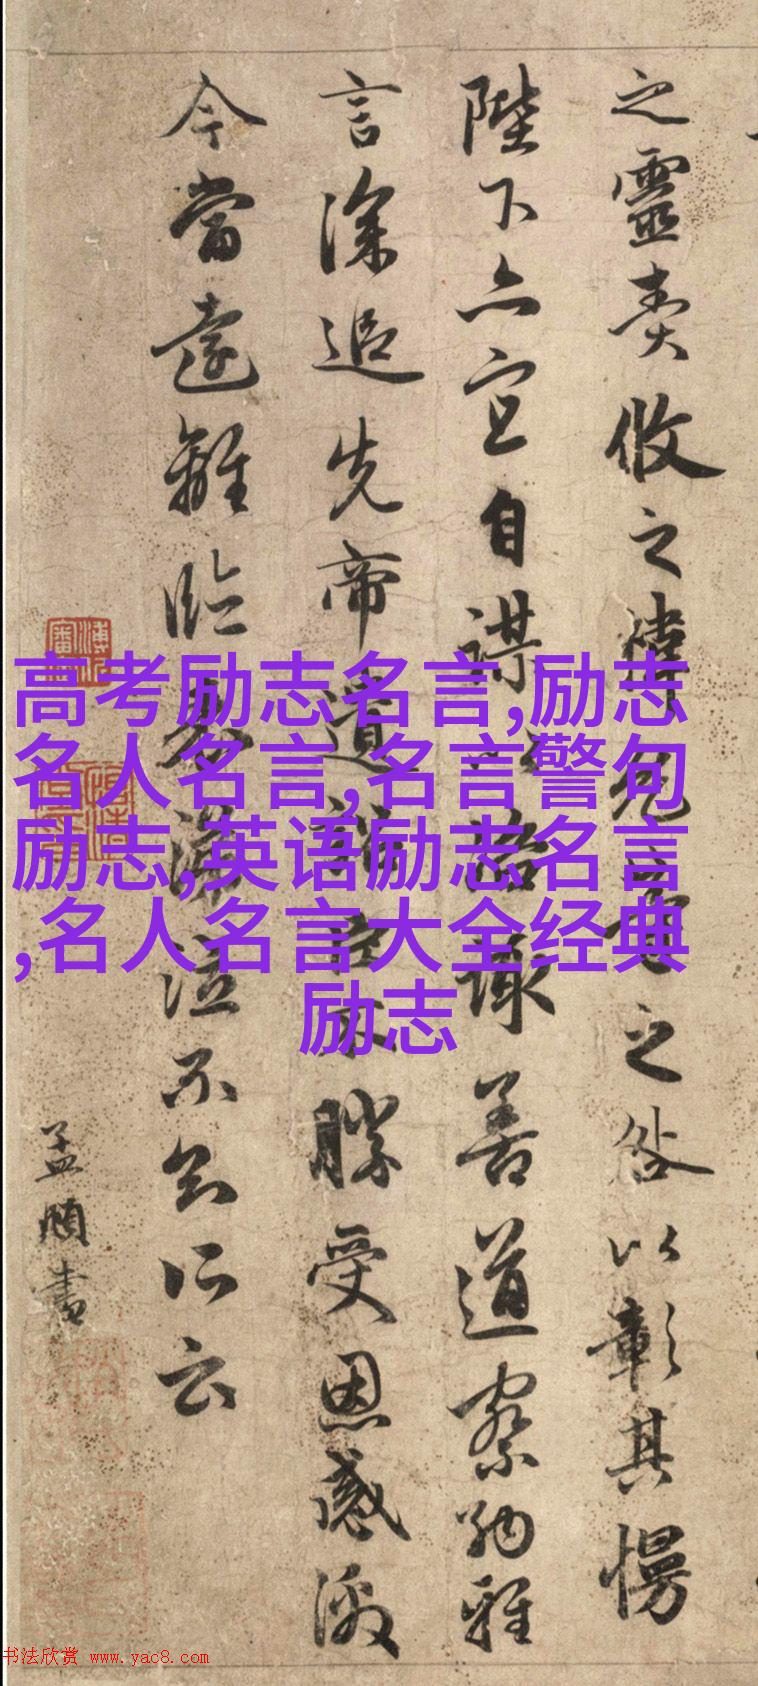 之靈責攸之禕允等之咎以彰其慢
陛下亦宜自謀以諮諏善道察納雅
言深追先帝遺詔臣不勝受恩感激
今當遠離臨表涕泣不知所云
孟頫書
高考励志名言,励志
名人名言,名言警句
励志,英语励志名言
,名人名言大全经典
励志
书法欣赏 www.yac8.com